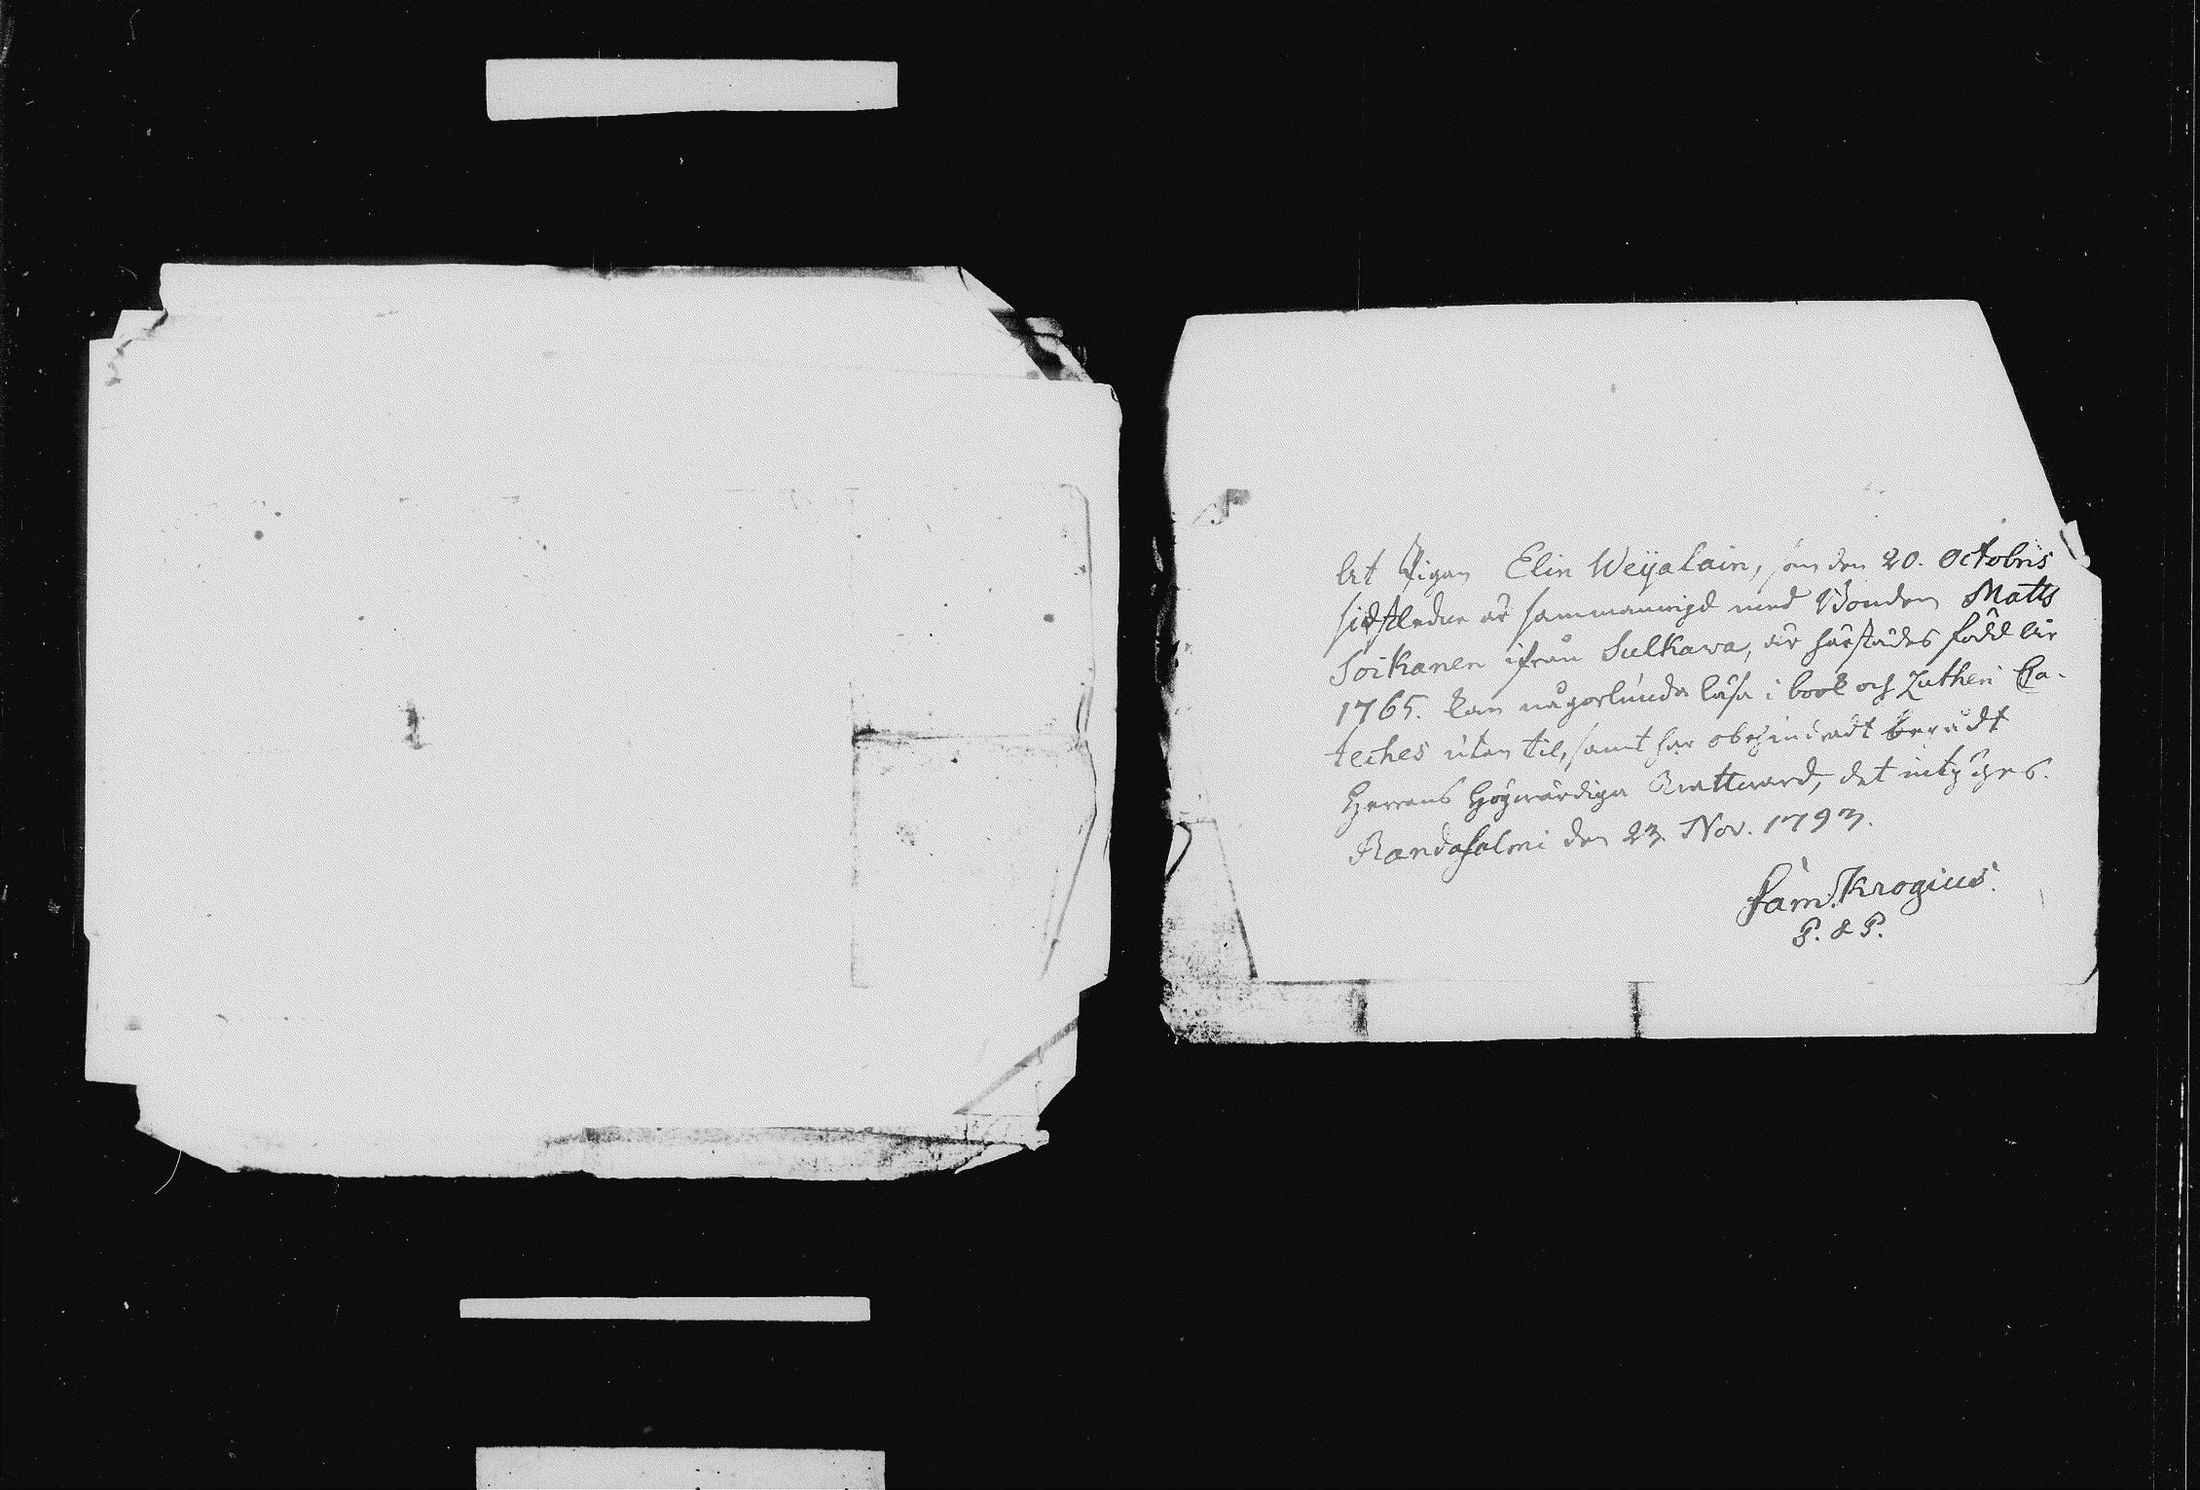 At Pigan Elin Weijalain, som den 20. Octobris
sidstledne är sammanwigd med Bonden Matts
Soikanen ifrån Sulkawa, är härstädes född åhr
1765. kan någorlunda läsa i book och Lutheri Ca-
teches utan til, samt har obehindradt begådt
Herrans Högwärdiga Nattward, det intygas.
Randasalmi den 23 Nov. 1793.
Sam. Krogius.
P. & P.